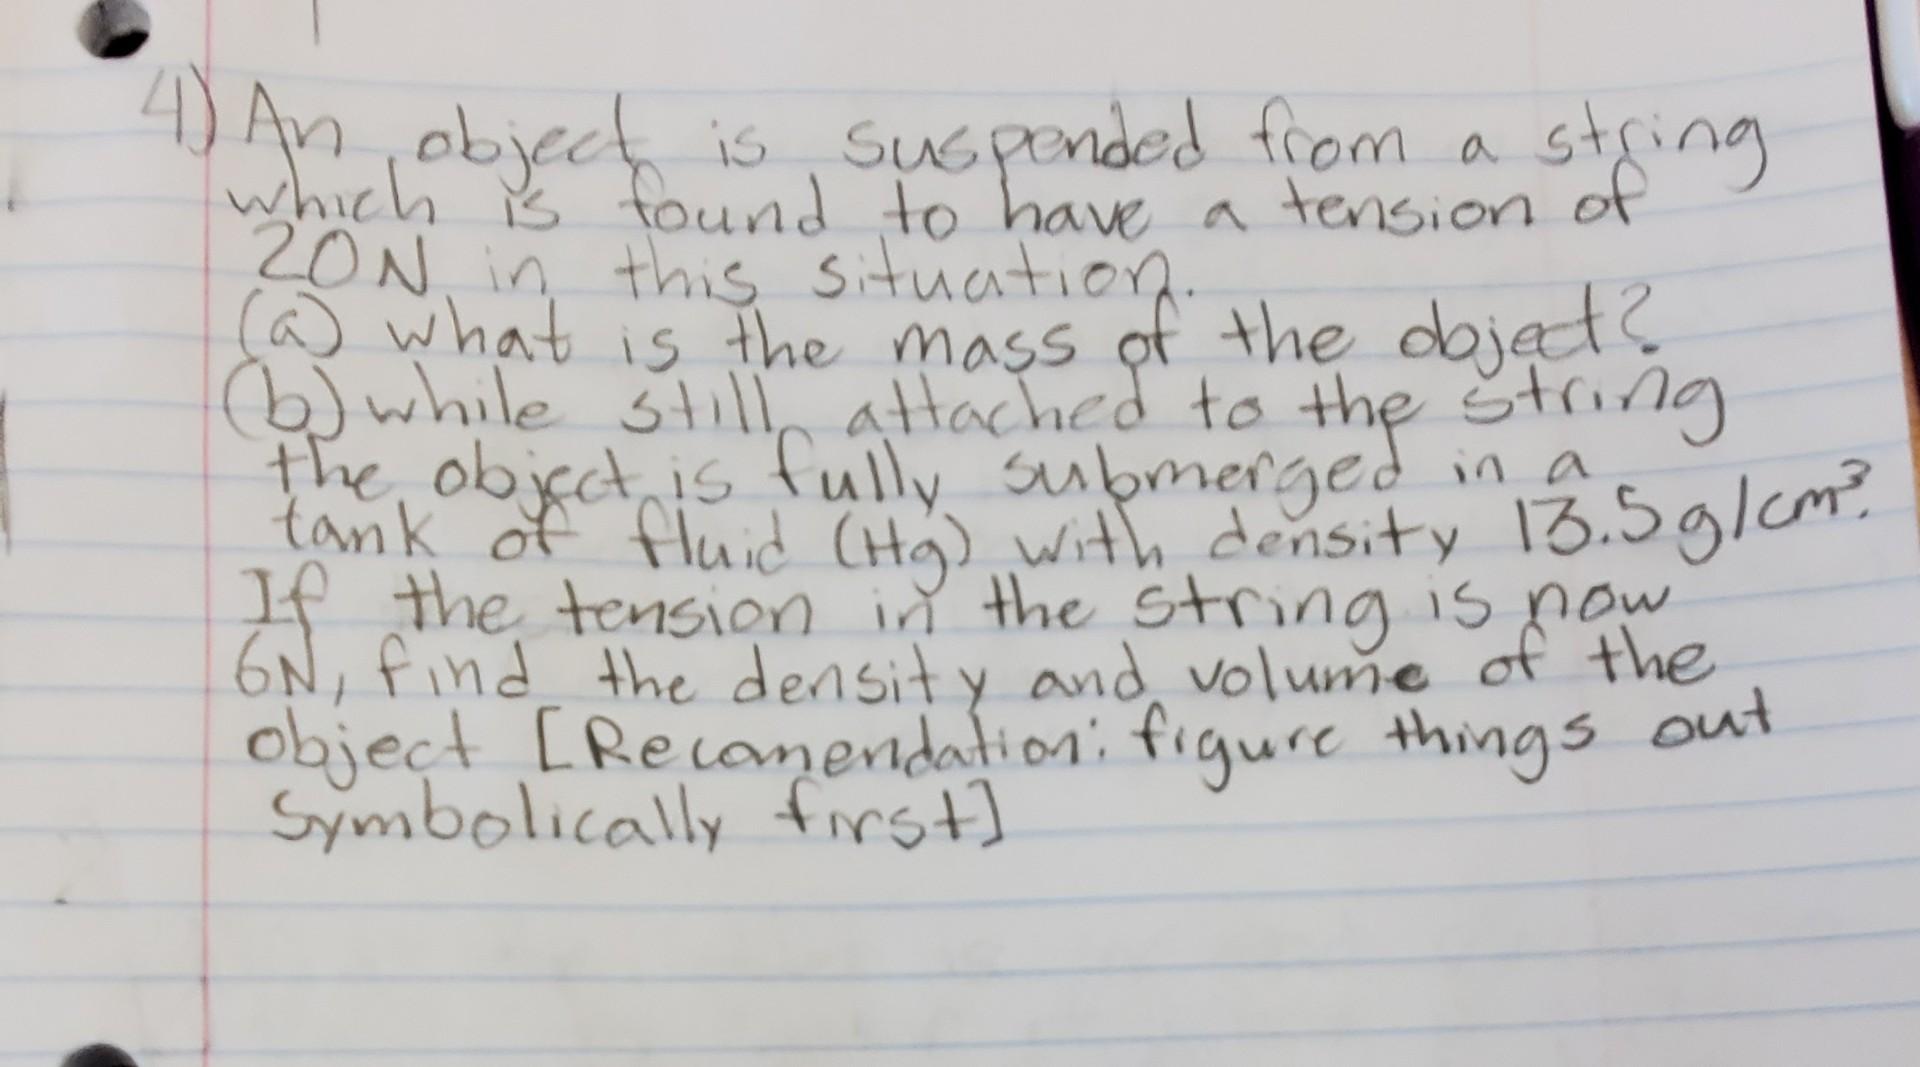 4) An object is suspended from a string
which is found to have a tension of
20N in this situation.
(a) what is the mass of the object?
(b) while still attached to the string
the object is fully submerged in a
tank of fluid (Hg) with density 13.5 g/cm³.
If the tension in the string is now
6N, find the density and volume of the
object [Recomendation: figure things out
Symbolically first]